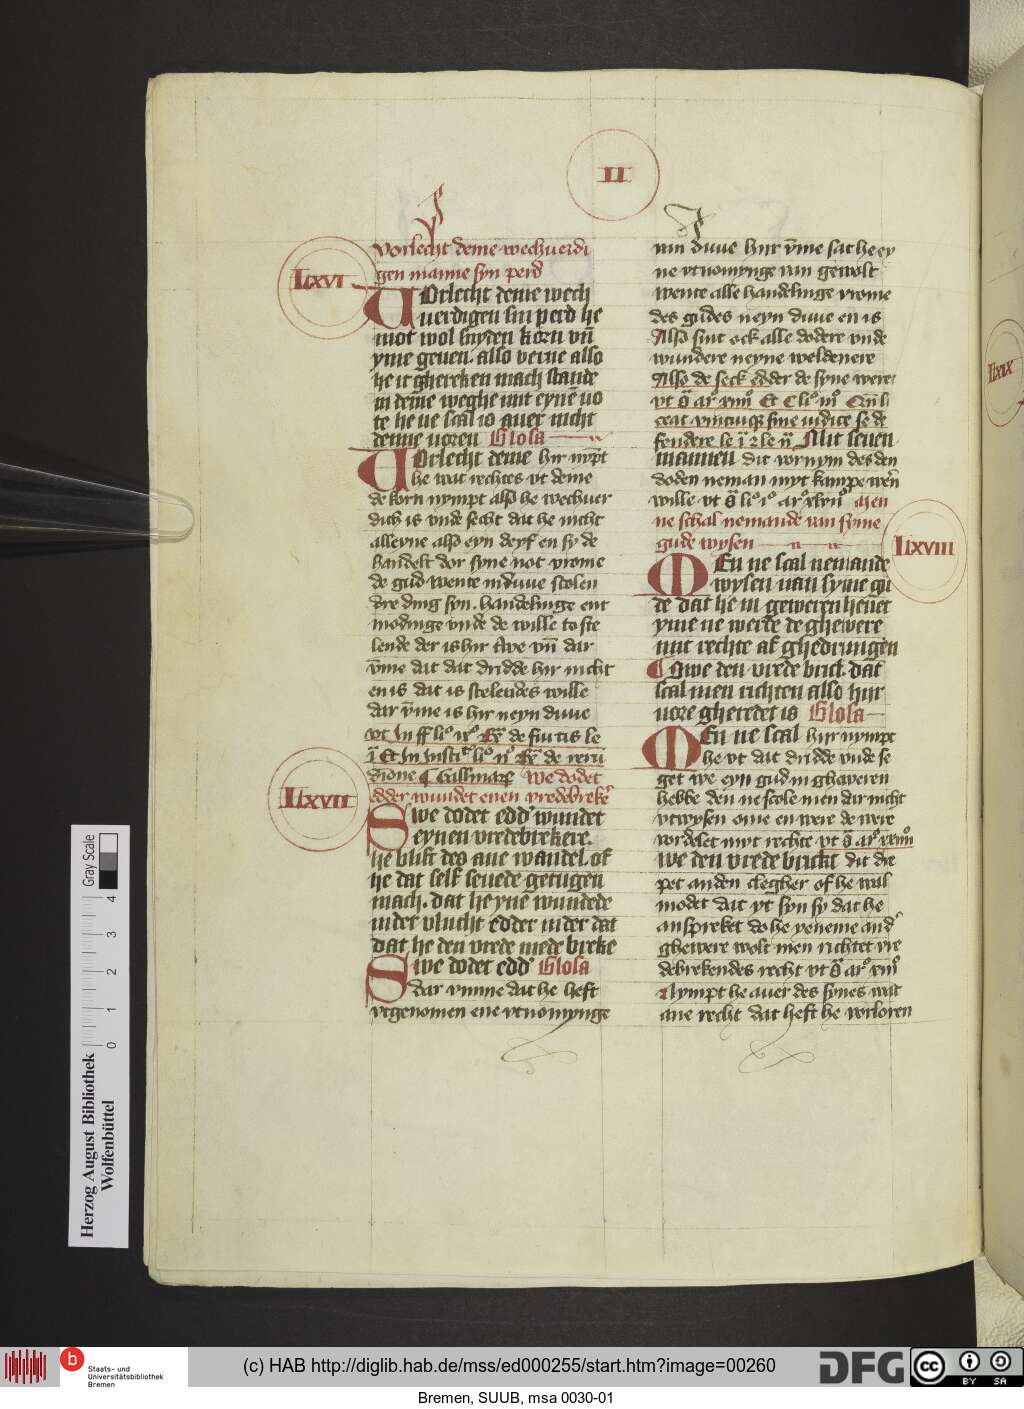 II
LXVI
Vorlecht deme wechuerdi
gen manne syn perd
VOrlecht deme wech
uerdigen sin perd he
mot wol snyden korn vn̄
yme geuen. also verne also
he it ghereken mach stande
in deme weghe mit eynē vo
te he ne scal io auer nicht
denne voren Glosa
VOrlecht deme hir nȳpt
he wat rechtes vt deme
de korn nympt alzo he wechuer
dich is vnde secht dat he nicht
alleyne alzo eyn deyf en sy de
handelt dor syne not vrome
de gud wente in duue stolen
dre ding syn. handelinge ent
modinge vnde de wille to ste
lende der is hir twe vn̄ dar
v̄me dat dat dridde hir nicht
en is dat is stelendes wille
dar v̄me is hir neyn duue
LXVII
dione Gallinarum We dodet
edder wundet enen vredebreker
SWe dodet edder wundet
eynen vredebrekere.
he blift des ane wandel. of
he dat self seuede getugen
mach. dat he yne wundede
in der vlucht edder in der dat
dat he den vrede mede breke
SWe dodet edder Glosa
dar vmme dat he heft
vtgenomen ene vtnomynge
van duue hir v̄me sat he ey
ne vtnomynge van gewolt
wente alle handelinge vrome
des gudes neyn duue en is
Also sint ock alle dodere vnde
wundere neyne weldenere
Also de seck edder de syne were
Mit seuen
mannen dit vornym des den
doden neman myt kampe weren
wille Men
ne schal nemande van syme
gude wysen
LXVIII
MEn ne scal nemande
wysen van syme gu
de dat he in geweren heuet
yme ne werde de ghewere
mit rechte af ghedrungen
Swe den vrede brict. dat
scal men richten also hir
vore gheredet is Glosa
MEn ne scal hir nympt
he vt dat dridde vnde se
get we eyn gud in gheweren
hebbe den ne scole men dar nicht
vtwysen eme en were de were
vordelet myt rechte
We den vrede brickt dit die
pet an den clegher of he wal
modet dat yt syn sy dat he
anspreket do he yeneme and
ghewere wolt men richtet vre
debrekendes recht
Nympt he auer des synes wat
ane recht dat heft he vorloren
LXIX
Gray Scale
0 1 2 3 4
Herzog August Bibliothek
Wolfenbüttel
b
Staats- und
Universitätsbibliothek
Bremen
(c) HAB http://diglib.hab.de/mss/ed000255/start.htm?image=00260
DFG
cc
BY SA
Bremen, SUUB, msa 0030-01